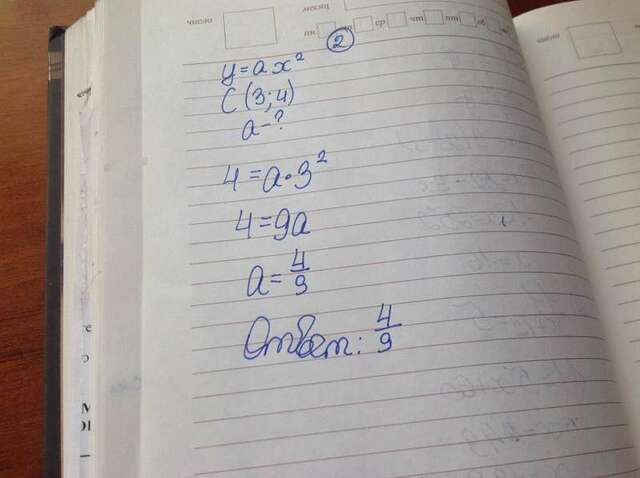 месяц
пн ср чт пт сб
2
y=ax²
C(3;4)
a-?
4=a·3²
4=9a
a=4/9
Ответ: 4/9